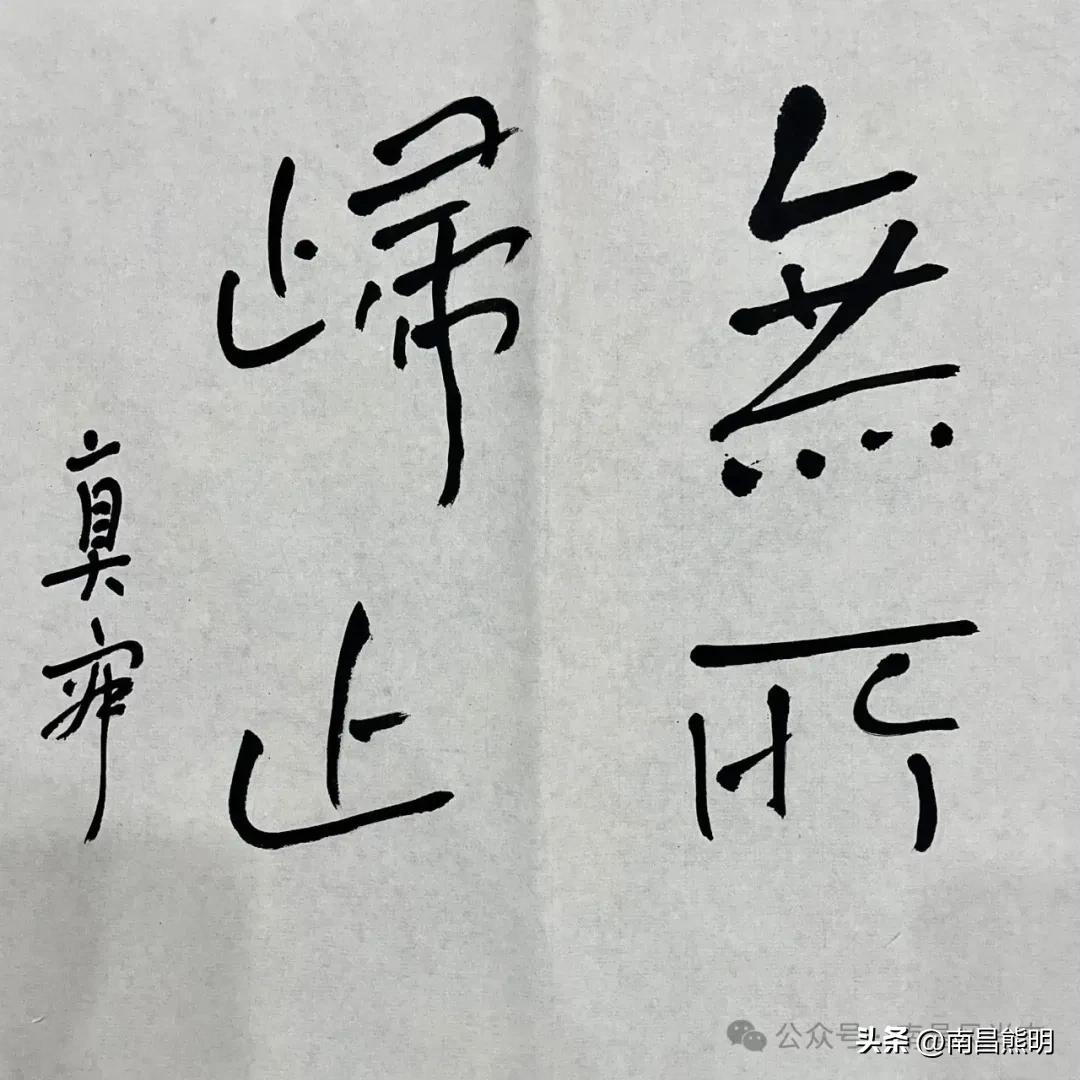 無所
歸止
真
公众号
头条 @南昌熊明